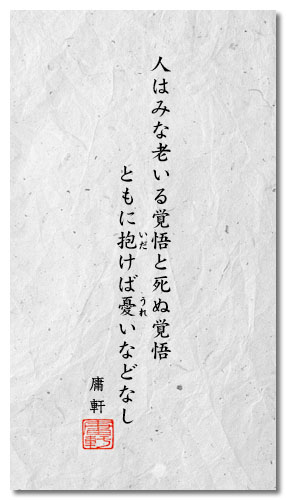 人はみな老いる覚悟と死ぬ覚悟
ともに抱けば憂いなどなし
いだ
うれ
庸軒
庸軒